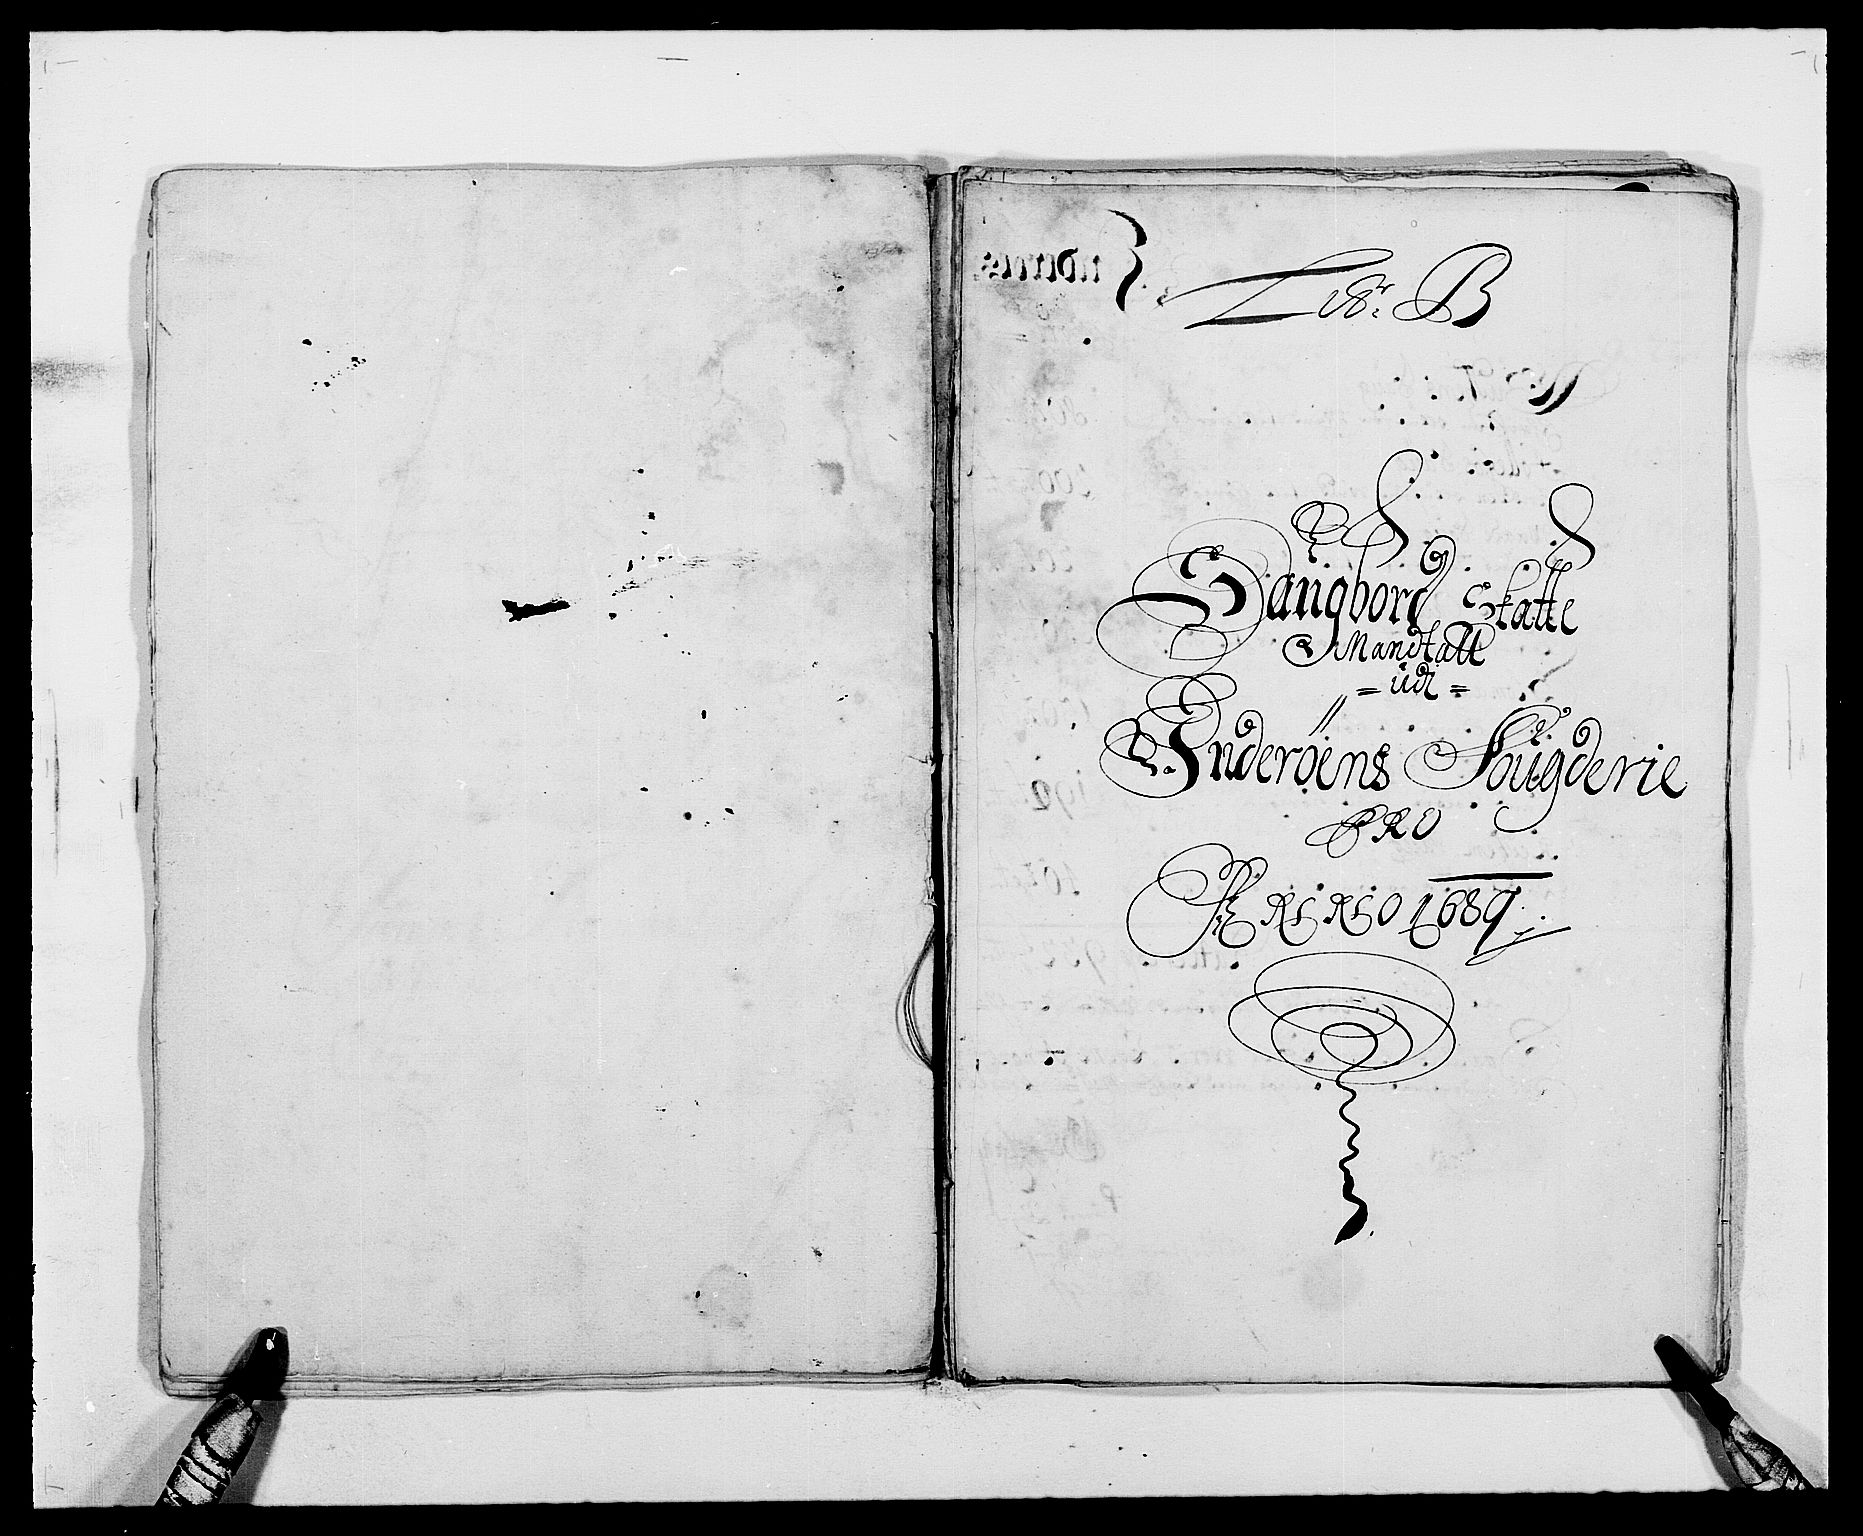 Litr. B
Sangbord Skatte
Mandtall
= udi =
Inderøens Fougderie
PRO
ANNO 1689